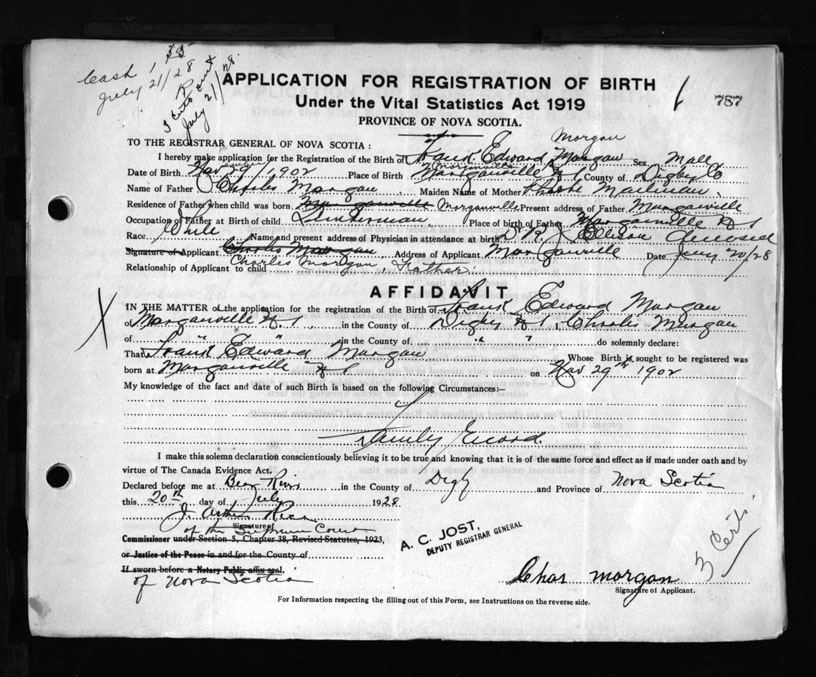 Cash 1
July 21/28
3 certs
July 21/28
APPLICATION FOR REGISTRATION OF BIRTH
787
Under the Vital Statistics Act 1919
PROVINCE OF NOVA SCOTIA.
TO THE REGISTRAR GENERAL OF NOVA SCOTIA:
Morgan
I hereby make application for the Registration of the Birth of Frank Edward Morgan Sex Male
Date of Birth Nov 29/1902 Place of Birth Morganville N S County of Digby Co
Name of Father Charles Morgan Maiden Name of Mother
Residence of Father when child was born Morganville Morganville Present address of Father Morganville
Occupation of Father at Birth of child Lumberman Place of birth of Father Morganville N S
Race White Name and present address of Physician in attendance at birth Dr R J Ellison deceased
Signature of Applicant Charles Morgan Address of Applicant Morganville Date July 20/28
Charles Morgan
Relationship of Applicant to child Father
AFFIDAVIT
IN THE MATTER of the application for the registration of the Birth of Frank Edward Morgan
of Morganville N S in the County of Digby N S I, Charles Morgan
of " " in the County of " " do solemnly declare:
That Frank Edward Morgan Whose Birth is sought to be registered was
born at Morganville N S on Nov 29th 1902
My knowledge of the fact and date of such Birth is based on the following Circumstances:—
Family Record
I make this solemn declaration conscientiously believing it to be true and knowing that it is of the same force and effect as if made under oath and by
virtue of The Canada Evidence Act.
Declared before me at Bear River in the County of Digby and Province of Nova Scotia
this 20th day of July 1928
J. Arthur Rice
Signature of
of the Supreme Court
Commissioner under Section 5, Chapter 38, Revised Statutes, 1923,
or Justice of the Peace in and for the County of
If sworn before a Notary Public affix seal.
of Nova Scotia
A. C. JOST,
DEPUTY REGISTRAR GENERAL
Chas Morgan
Signature of Applicant.
3 Certs.
For Information respecting the filling out of this Form, see Instructions on the reverse side.